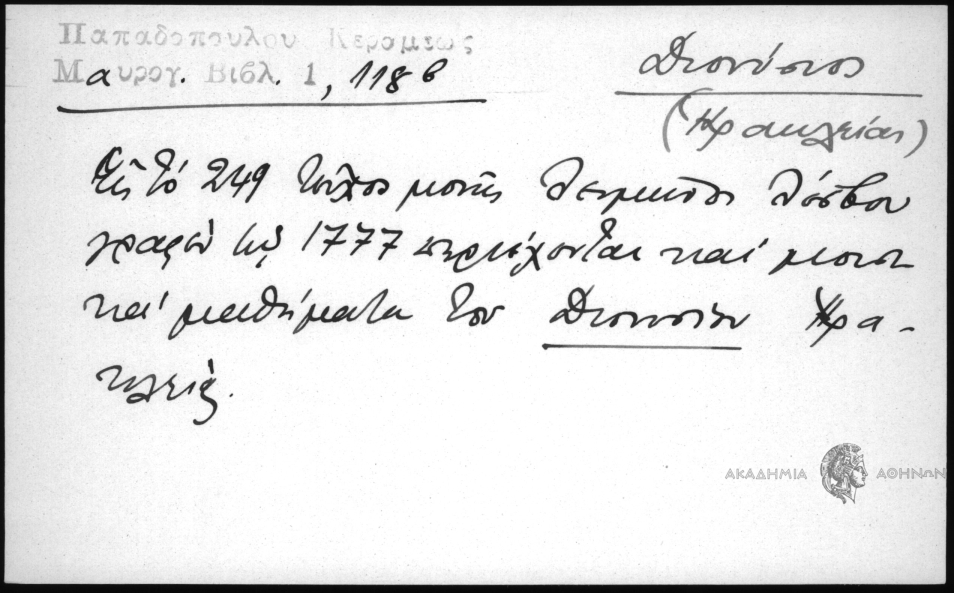 Παπαδοπουλου Κεραμεως
Μαυρογ. Βιβλ. 1, 118β
Διονύσιος
(Ηρακλείας)
Εἰς τό 249 τεῦχος μονῆς Λειμῶνος Λέσβου
γραφέν τῷ 1777 περιέχονται καί μουσι-
κά μαθήματα του Διονυσίου Ηρα-
κλείας.
ΑΚΑΔΗΜΙΑ ΑΘΗΝΩΝ